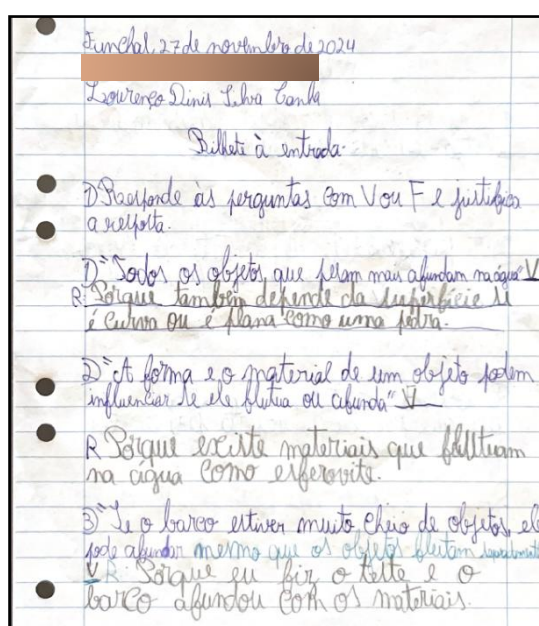 Funchal, 27 de novembro de 2024
Lourenço Dinis Silva Canha
Bilhete à entrada.
1) Responde às perguntas com V ou F e justifica
a resposta.
1) "Todos os objetos que pesam mais afundam na água" V
R: Porque também depende da superfície se
é curva ou é plana como uma pedra.
2) "A forma e o material de um objeto podem
influenciar se ele flutua ou afunda" V
R Porque existe materiais que flutuam
na água como esferovite.
3) "Se o barco estiver muito cheio de objetos, ele
pode afundar mesmo que os objetos flutam
V R Porque eu fiz o teste e o
barco afundou com os materiais.